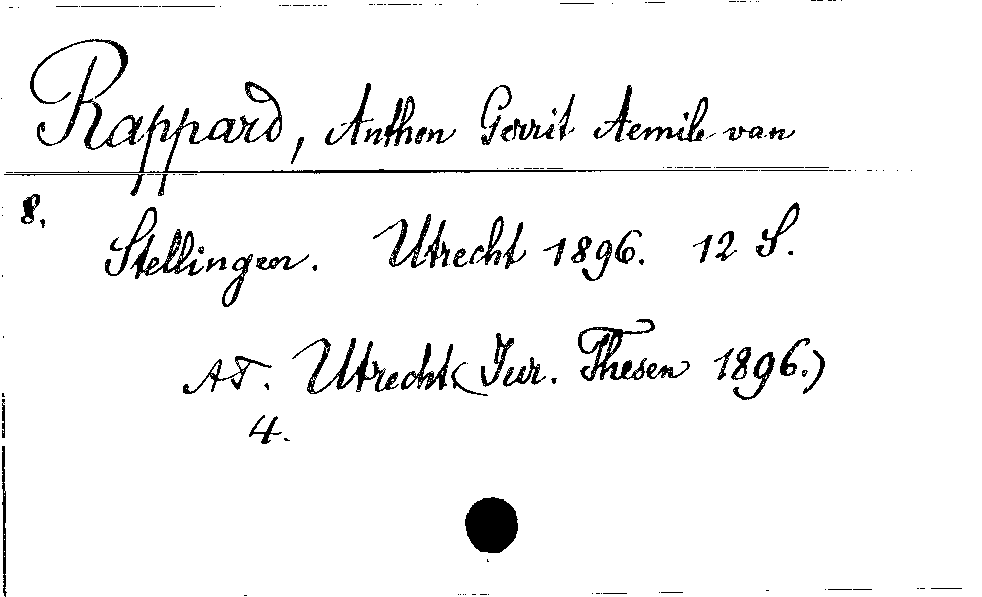 Rappard, Anthon Gerrit Aemile van
8.
Stellingen. Utrecht 1896. 12 S.
AT. Utrecht (Jur. Thesen 1896.)
4.